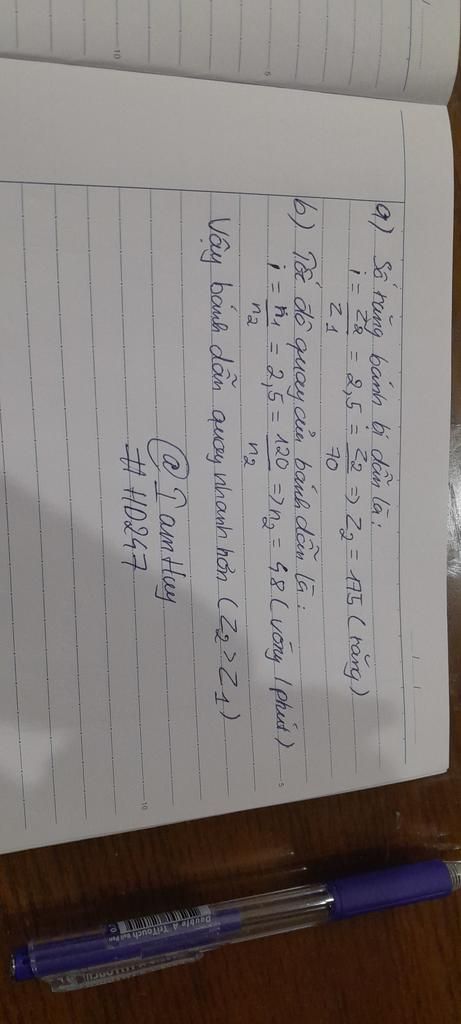 a) Số răng bánh bị dẫn là:
i = Z2/Z1 = 2,5 = Z2/70 => Z2 = 175 (răng)
b) Tốc độ quay của bánh dẫn là:
i = n1/n2 = 2,5 = 120/n2 => n2 = 48 (vòng / phút)
Vậy bánh dẫn quay nhanh hơn (Z2 > Z1)
@TamHuy
#HD247
10
5
5
10
Double A TriTouch Ball Pen